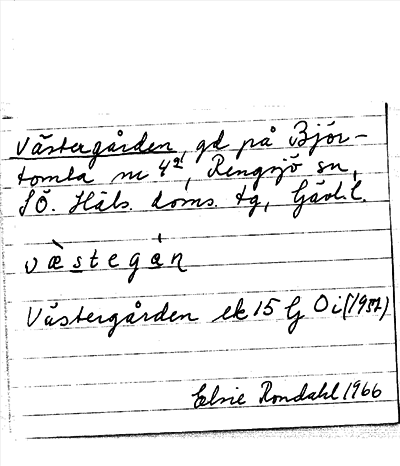 Västergården, gd på Björ-
tomta nr 4², Rengsjö sn,
SÖ. Häls. doms. tg, Gävl. l.
væ̀stegán
Västergården ek 15 G Öi (1952)
Elsie Rondahl 1966